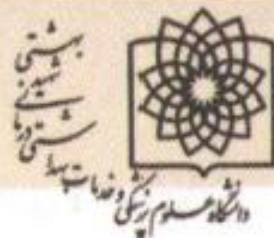 دانشگاه علوم پزشکی و خدمات بهدا
شتی درما
نی
شهید
بهشتی